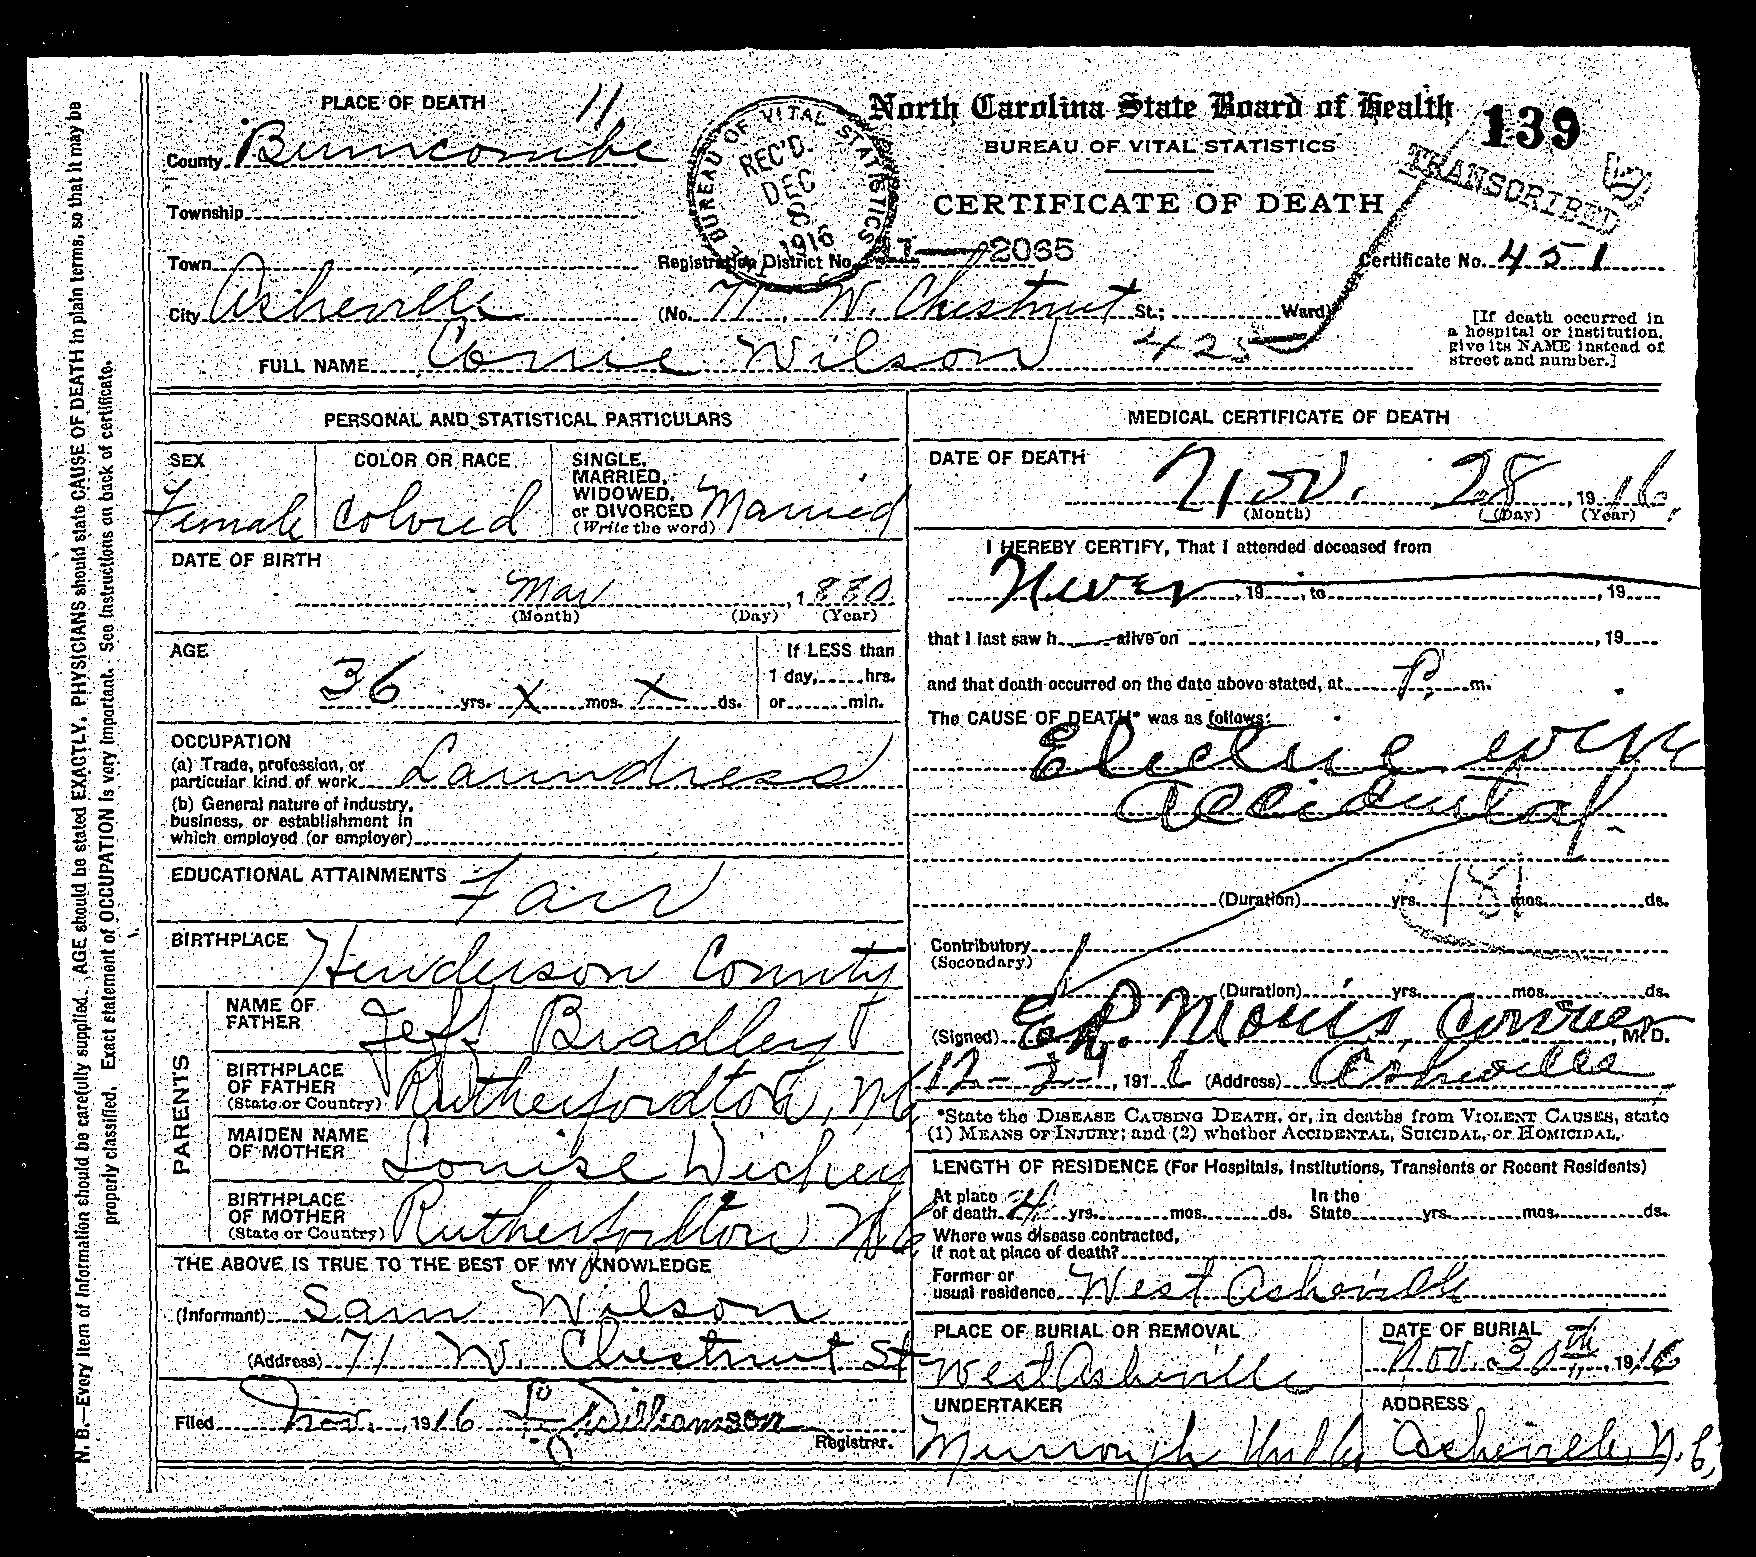 PLACE OF DEATH 11
County Buncombe
Township
Town
City Asheville
BUREAU OF VITAL STATISTICS
REC'D.
DEC
8
1916
North Carolina State Board of Health
139
BUREAU OF VITAL STATISTICS
TRANSCRIBED
CERTIFICATE OF DEATH
Registration District No. 2065
Certificate No. 451
(No. 71, W. Chestnut St.; Ward)
[If death occurred in
a hospital or institution,
give its NAME instead of
street and number.]
FULL NAME Corrie Wilson 425
PERSONAL AND STATISTICAL PARTICULARS
SEX
Female
COLOR OR RACE
Colored
SINGLE,
MARRIED,
WIDOWED,
or DIVORCED Married
(Write the word)
DATE OF BIRTH
Mar , 1880
(Month) (Day) (Year)
AGE
36 yrs. x mos. x ds.
If LESS than
1 day, hrs.
or min.
OCCUPATION
(a) Trade, profession, or
particular kind of work Laundress
(b) General nature of industry,
business, or establishment in
which employed (or employer)
EDUCATIONAL ATTAINMENTS Fair
BIRTHPLACE Henderson County
PARENTS
NAME OF
FATHER Jeff Bradley
BIRTHPLACE
OF FATHER
(State or Country) Rutherfordton, N.C.
MAIDEN NAME
OF MOTHER Louise
BIRTHPLACE
OF MOTHER
(State or Country) Rutherfordton N.C.
THE ABOVE IS TRUE TO THE BEST OF MY KNOWLEDGE
(Informant) Sam Wilson
(Address) 71 W. Chestnut St
Filed Nov. , 1916 Williamson
Registrar.
MEDICAL CERTIFICATE OF DEATH
DATE OF DEATH
Nov. 28, 1916.
(Month) (Day) (Year)
I HEREBY CERTIFY, That I attended deceased from
Never , 19 , to , 19
that I last saw h alive on , 19
and that death occurred on the date above stated, at P. m.
The CAUSE OF DEATH* was as follows:
Electric wire
accidental.
(Duration) yrs. mos. ds.
181
Contributory
(Secondary)
(Duration) yrs. mos. ds.
(Signed) E.R. Morris, Coroner, M. D.
191 (Address) Asheville
*State the DISEASE CAUSING DEATH, or, in deaths from VIOLENT CAUSES, state
(1) MEANS OF INJURY; and (2) whether ACCIDENTAL, SUICIDAL, or HOMICIDAL.
LENGTH OF RESIDENCE (For Hospitals, Institutions, Transients or Recent Residents)
At place
of death 4 yrs. mos. ds.
In the
State yrs. mos. ds.
Where was disease contracted,
if not at place of death?
Former or
usual residence West Asheville
PLACE OF BURIAL OR REMOVAL
West Asheville
DATE OF BURIAL
Nov. 30th, 1916
UNDERTAKER
Murrough
ADDRESS
Asheville, N.C.
N. B.—Every item of information should be carefully supplied. AGE should be stated EXACTLY. PHYSICIANS should state CAUSE OF DEATH in plain terms, so that it may be
properly classified. Exact statement of OCCUPATION is very important. See instructions on back of certificate.